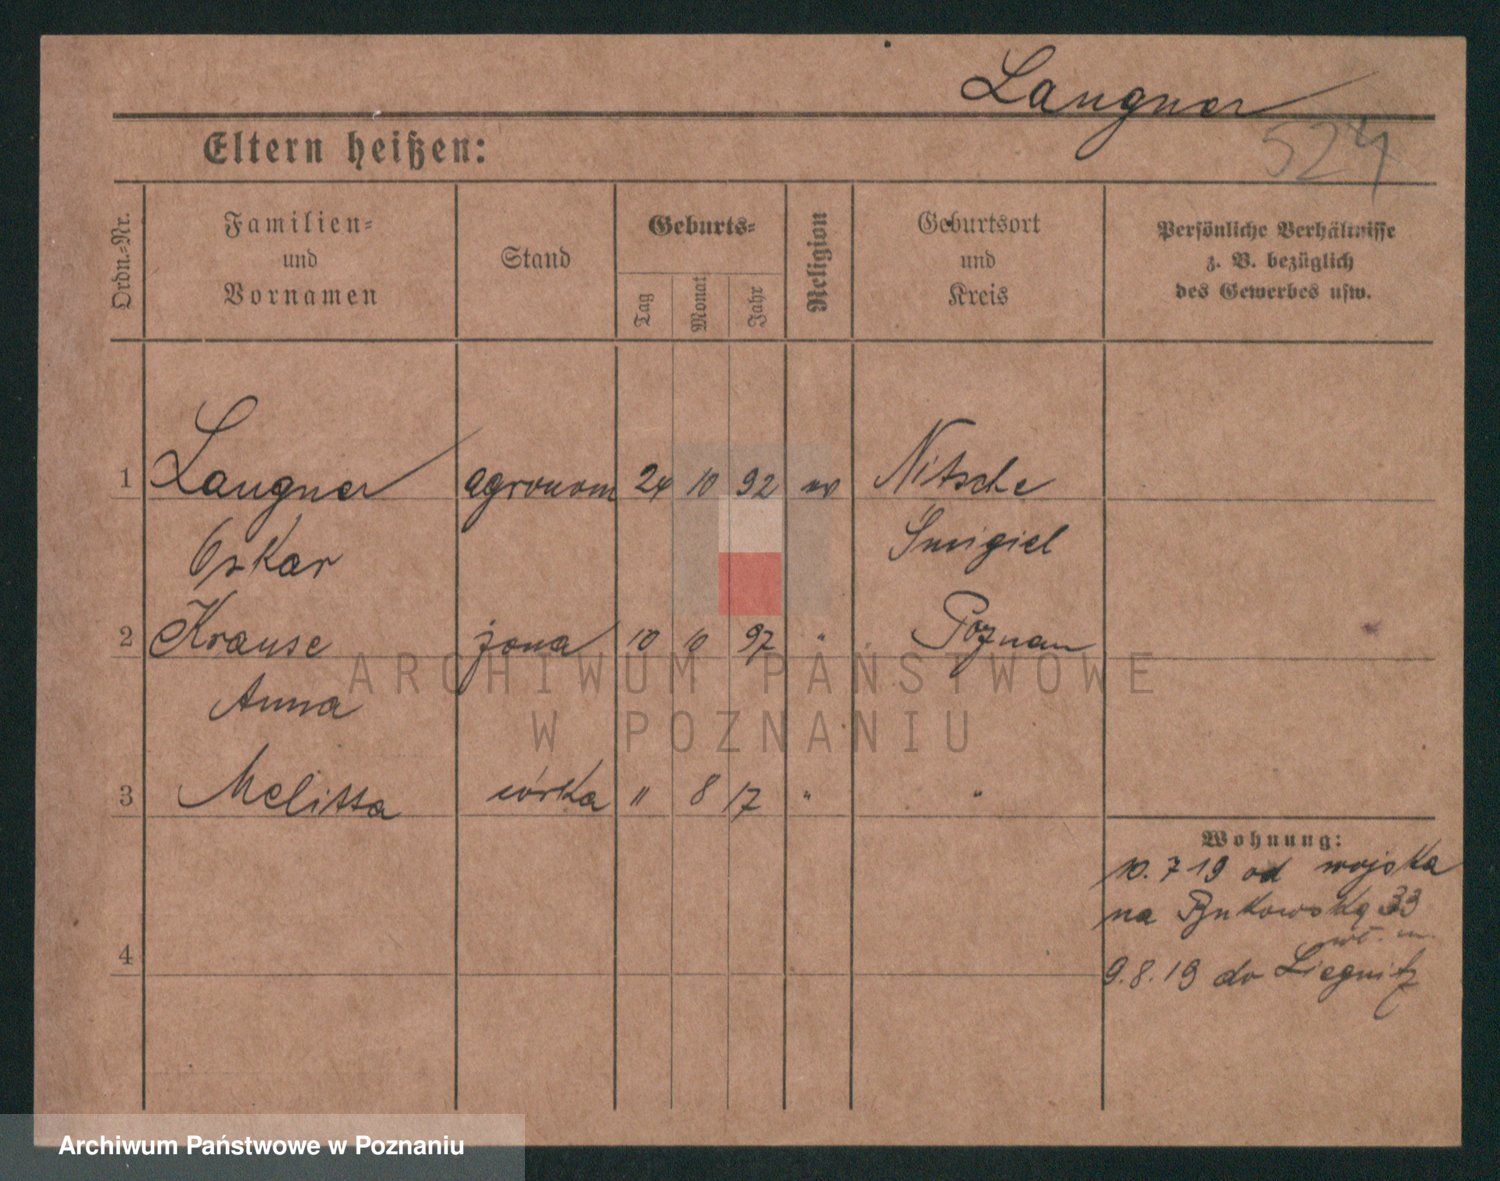 Langner
524
Eltern heißen:
Ordn.-Nr.
Familien-
und
Vornamen
Stand
Geburts-
Tag
Monat
Jahr
Religion
Geburtsort
und
Kreis
Persönliche Verhältnisse
z. B. bezüglich
des Gewerbes usw.
1 Langner agronom 24 10 92 ev Nitsche
Oskar Śmigiel
2 Krause żona 10 10 97 " Poznan
Anna
3 Melitta córka " 8 17 " "
Wohnung:
10.7 19 od wojska
na Bukowską 33
4
9.8.19 do Liegnitz
ARCHIWUM PAŃSTWOWE
W POZNANIU
Archiwum Państwowe w Poznaniu